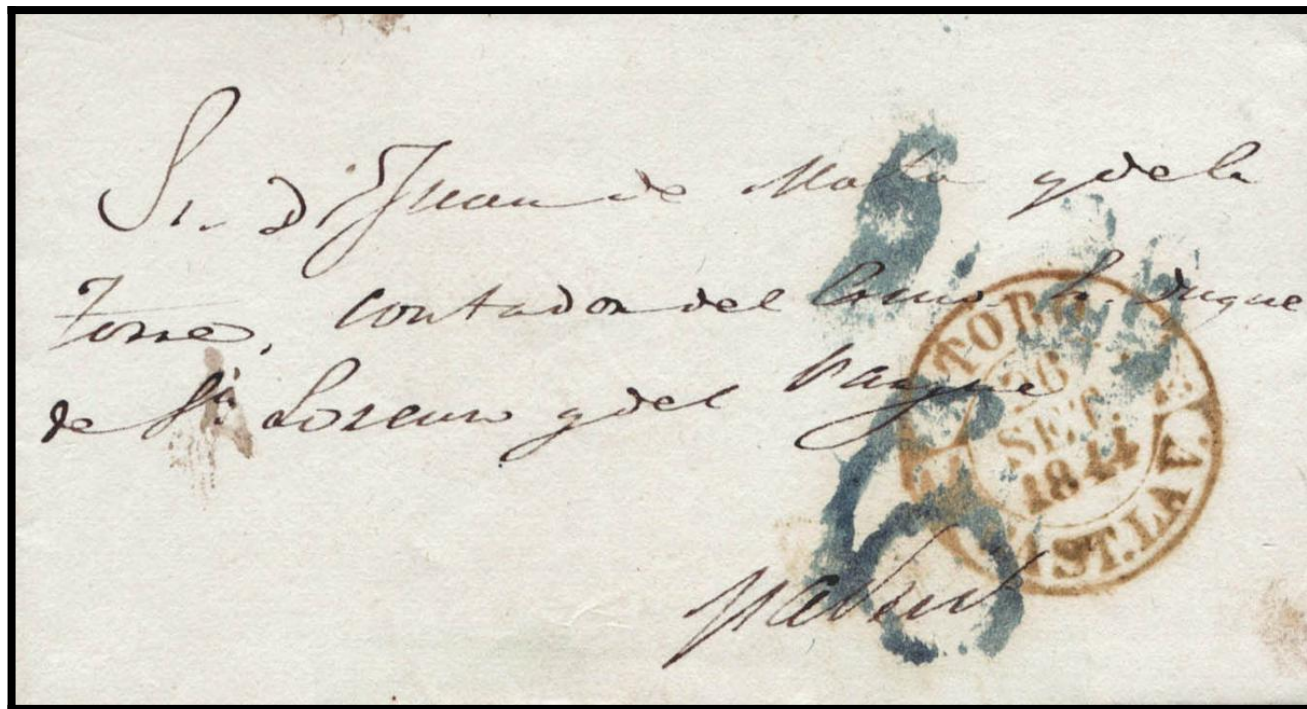 Sr. Dn. Juan de Mata y de la
Torre, contador del Exmo. Sr. Duque
de Sn. Lorenzo y del Parque
Madrid
TORO
26
SET.
1844
CAST. LA V.